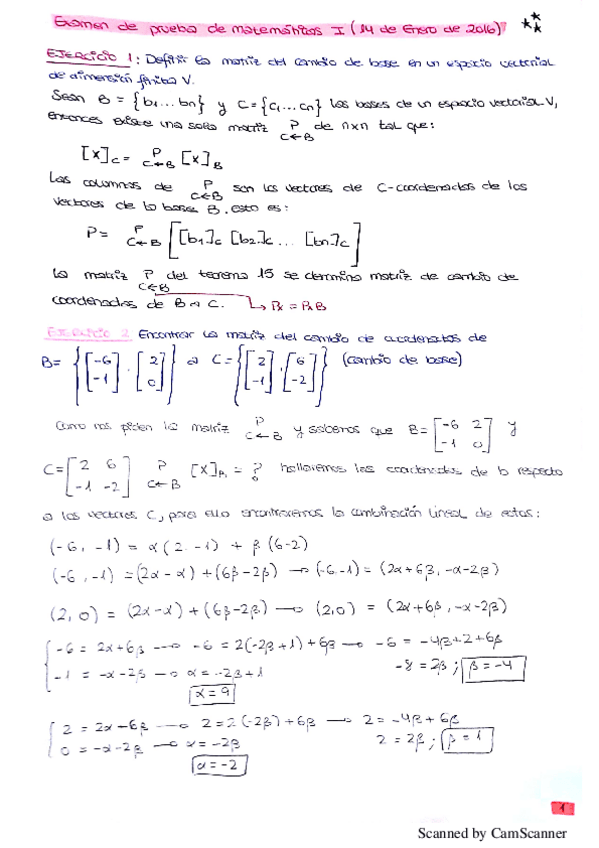 Examen de prueba de matemáticas I (14 de Enero de 2016)
EJERCICIO 1: Definir la matriz del cambio de base en un espacio vectorial
de dimensión finita V.
Sean B = {b₁...bn} y C = {c₁...cn} las bases de un espacio vectorial V,
entonces existe una sola matriz P C←B de n×n tal que:
[X]c = P C←B [X]B
Las columnas de P C←B son los vectores de C-coordenadas de los
vectores de la base B. esto es:
P = P C←B [[b₁]c [b₂]c ... [bn]c]
La matriz P C←B del teorema 15 se denmina matriz de cambio de
coordenadas de B a C. ↳ Px = PxB
EJERCICIO 2 Encontrar la matriz del cambio de coordenadas de
B = {[-6 -1] . [2 0]} a C = {[2 -1] , [6 -2]} (cambio de base)
Como nos piden la matriz P C←B y sabemos que B = [-6 2 -1 0] y
C = [2 6 -1 -2] P C←B [X]B₁ = ? hallaremos las coordenadas de b respecto
a los vectores C, para ello encontraremos la combinación lineal de estos:
(-6, -1) = α(2. -1) + β(6-2)
(-6, -1) = (2α - α) + (6β - 2β) → (-6. -1) = (2α + 6β, -α - 2β)
(2, 0) = (2α - α) + (6β - 2β) → (2, 0) = (2α + 6β, -α - 2β)
-6 = 2α + 6β → -6 = 2(-2β + 1) + 6β → -6 = -4β + 2 + 6β
-1 = -α - 2β → α = -2β + 1 -8 = 2β ; β = -4
α = 9
2 = 2α - 6β → 2 = 2(-2β) + 6β → 2 = -4β + 6β
0 = -α - 2β → α = -2β 2 = 2β ; β = 1
α = -2
1
Scanned by CamScanner